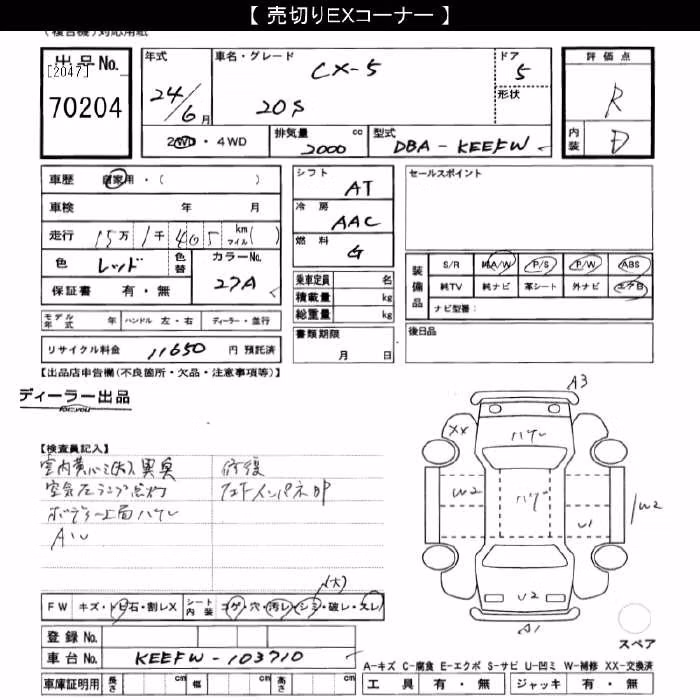 【 売切りEXコーナー 】
(複合機)対応用紙
出品No.
[2047]
70204
年式
24/6月
車名・グレード
CX-5
20S
ドア
5
形状
2WD・4WD
排気量 cc
2000
型式
DBA-KEEFW
評価点
R
内装
D
車歴 自家用・( )
車検 年 月
走行 15万 1千 405 km マイル( )
色 レッド 色替 カラーNo. 27A
保証書 有・無
シフト
AT
冷房
AAC
燃料
G
乗車定員 名
積載量 kg
総重量 kg
書類期限
月 日
セールスポイント
装備品
S/R 純A/W P/S P/W ABS
純TV 純ナビ 革シート 外ナビ エアB
ナビ型番:
後日品
モデル年式 年 ハンドル 左・右 ディーラー・並行
リサイクル料金 11650 円 預託済
【出品店申告欄(不良箇所・欠品・注意事項等)】
ディーラー出品
for you
【検査員記入】
室内 異臭 修復
ボデー上面ハゲ
A3
XX ハゲ
W2 ハゲ U1 W2
U2
A1
スペア
(大)
FW キズ・トビ石・割レX シート内装 コゲ・穴・汚レ・シミ・破レ・スレ
登録No.
車台No. KEEFW-103710
車庫証明用 長さ cm 幅 cm 高さ cm
A-キズ C-腐食 E-エクボ S-サビ U-凹ミ W-補修 XX-交換済
工具 有・無 ジャッキ 有・無